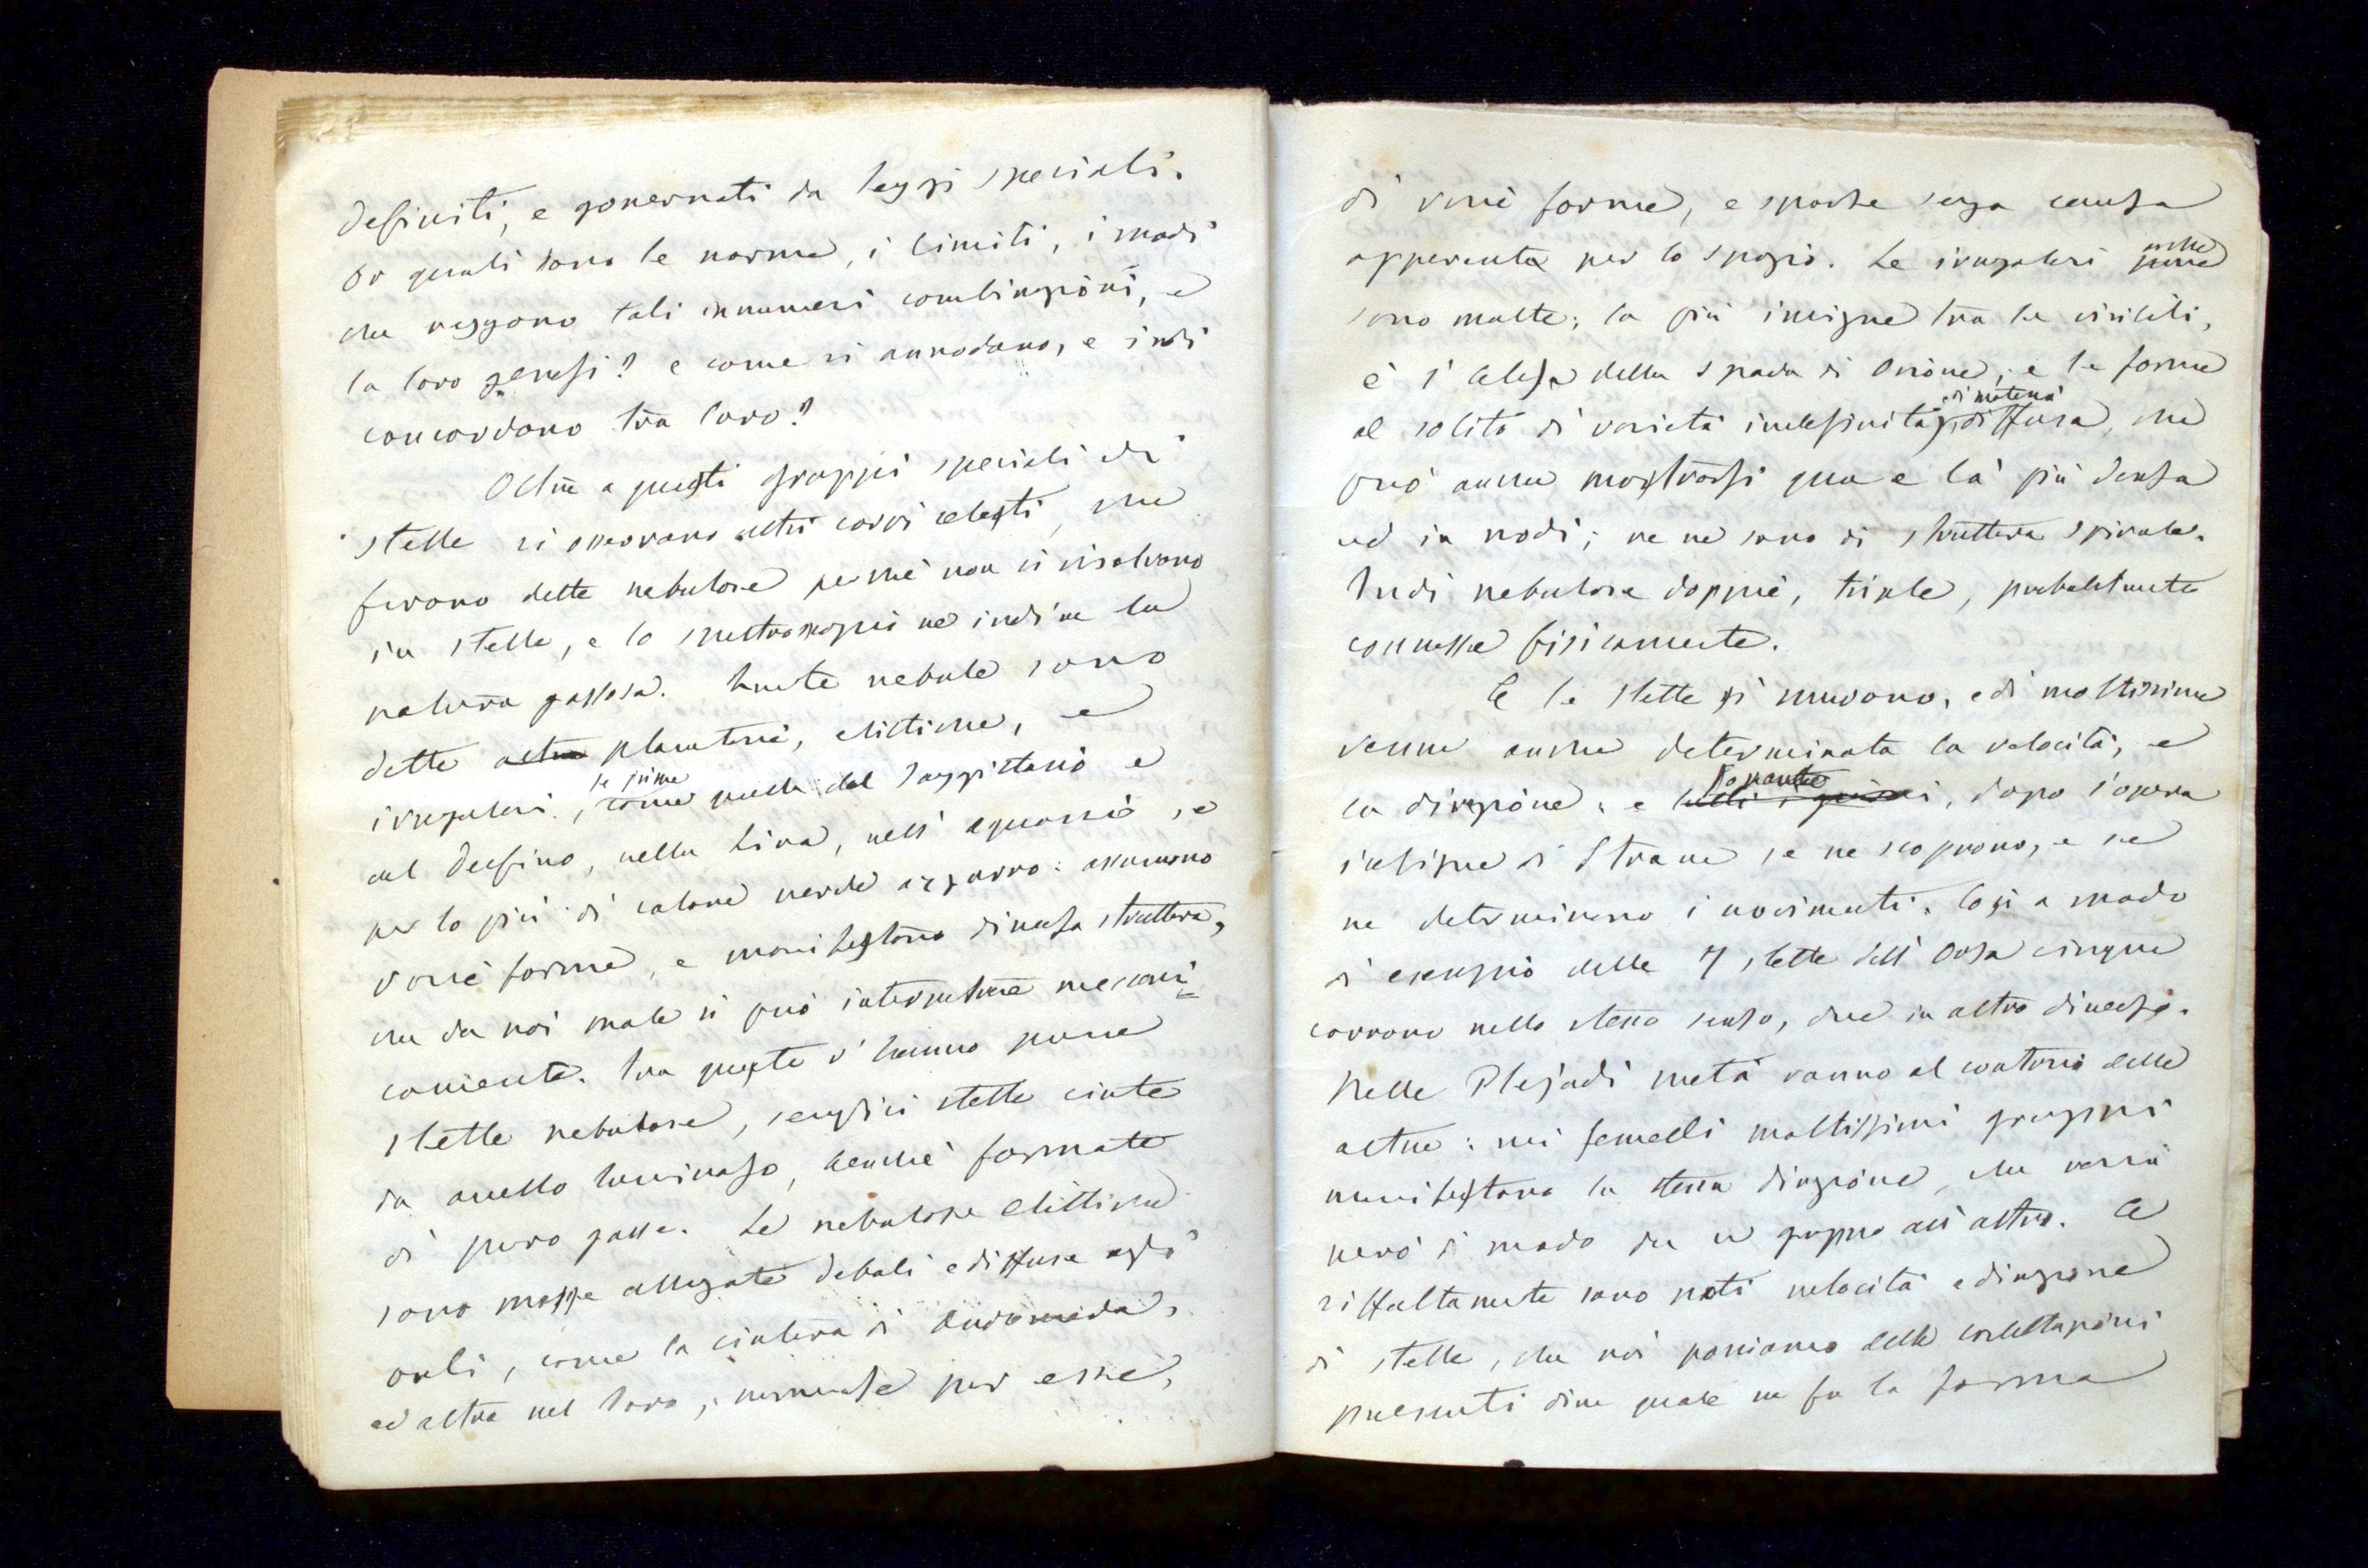 definiti, e governati da leggi speciali.
Or quali sono le norme, i limiti, i modi
che reggono tali innumeri combinazioni, e
la loro genesi? e come si annodano, e indi
concordano tra loro?
Oltre a questi gruppi speciali di
stelle si osservano altri corpi celesti, che
furono dette nebulose perché non si risolvono
in stelle, e lo spettroscopio ne indica la
natura gassosa. Queste nebule sono
dette altre planetarie, elittiche, e
irregolari, le prime come quelle del Saggittario e
del Delfino, nella Lira, nell' Aquario, e
per lo più di colore verde azzurro: assumono
varie forme, e manifestano diversa struttura,
che da noi male si può interpretare meccani-
camente. Tra queste v' hanno pure
stelle nebulose, semplici stelle cinte
da anello luminoso, benché formate
di puro gasse. Le nebulose elittiche
sono masse allungate debali e diffuse agli
orli, come la cintura di Andromeda,
ed altre nel loro, immense per esse,
di varie forme, e sparse senza causa
apparente per lo spazio. Le irregolari anche
sono molte; la più insigne tra le visibili,
è l' celeste della spada di Orione, e le forme
al solito di varietà indefinita, di materia diffusa, che
può anche mostrarsi qua e là più densa
ed in nodi; ve ne sono di struttura spirale.
Indi nebulose doppie, triple, probabilmente
connesse fisicamente.
E le stelle si muovono, e di moltissime
venne anche determinata la velocità, e
la direzione, e dopo l'opera
insigne di Struve se ne scoprono, e se
ne determinano i movimenti. Così a modo
di esempio delle 7 stelle dell' Orsa cinque
corrono nello stesso senso, due in altro diverso.
Nelle Plejadi metà vanno al contrario delle
altre: nei Gemelli moltissimi gruppi
manifestano la stessa direzione, che varia
però di modo da un gruppo all' altro. E
siffattamente sono noti velocità e direzione
di stelle, che noi possiamo delle costellazioni
presenti dire quale ne fu la forma